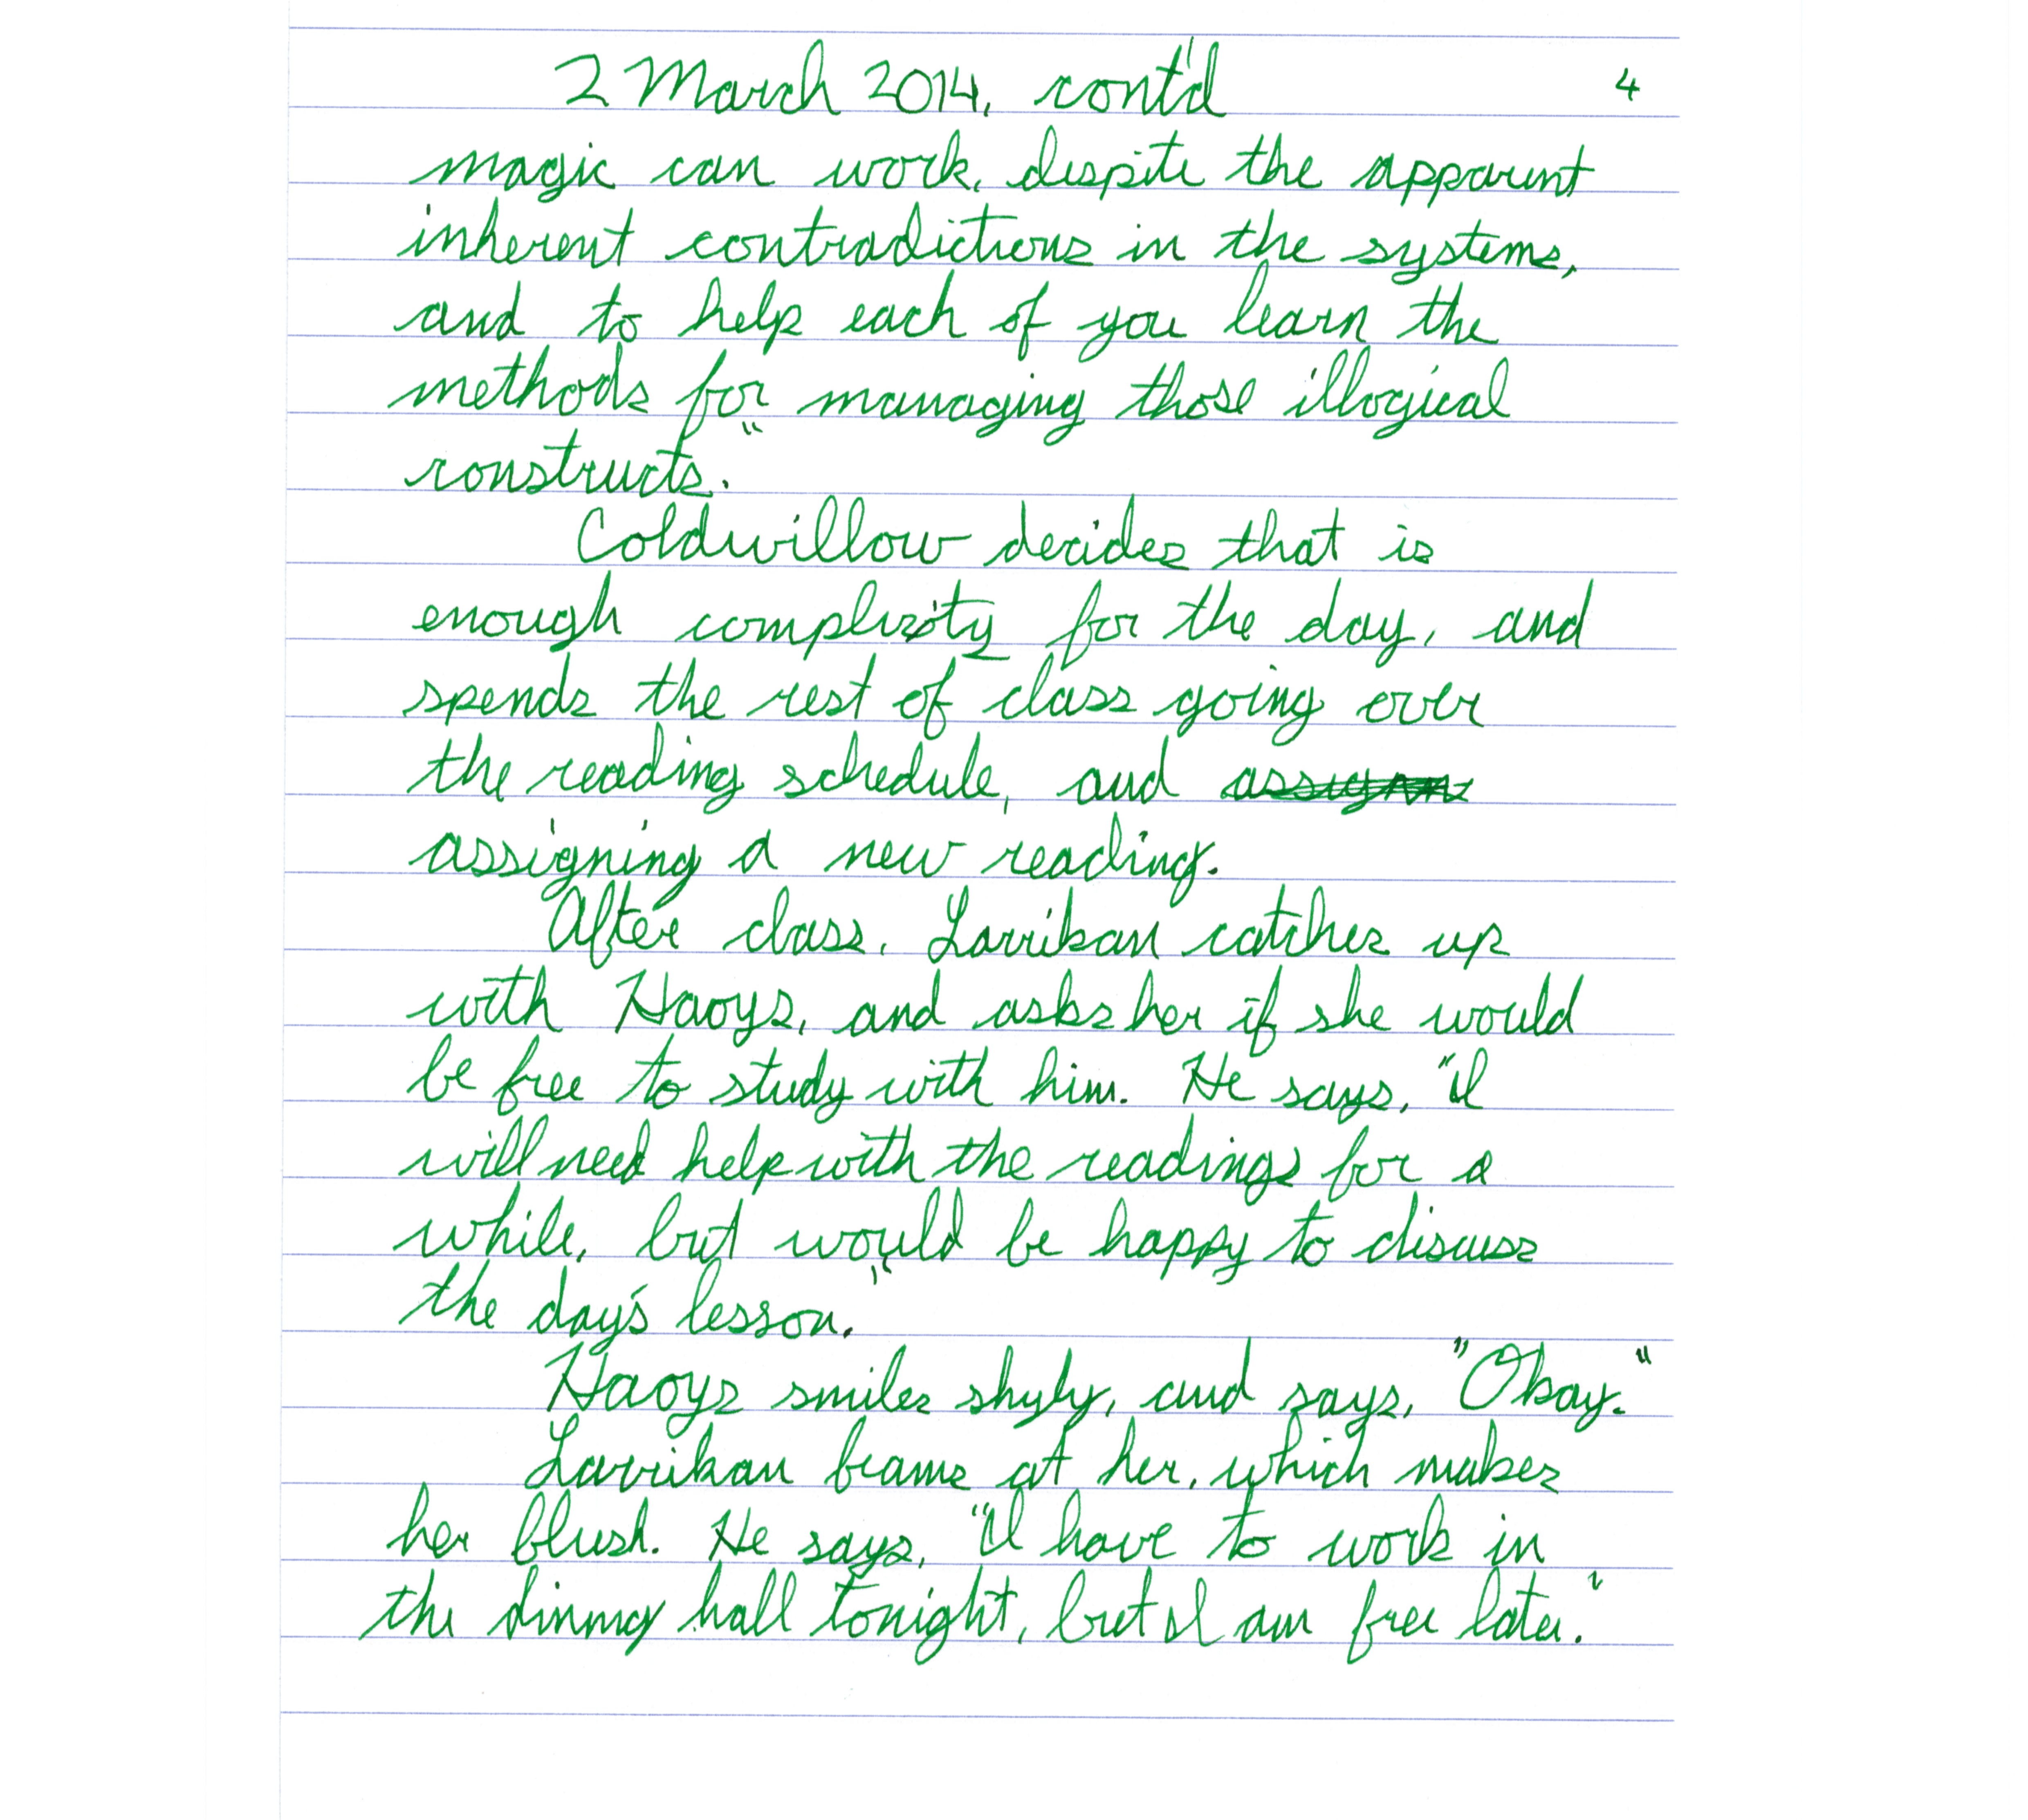 2 March 2014, cont'd 4
magic can work, despite the apparent
inherent contradictions in the systems,
and to help each of you learn the
methods for managing those illogical
constructs."
Coldwillow decides that is
enough complexity for the day, and
spends the rest of class going over
the reading schedule, and assignn
assigning a new reading.
After class, Larrikan catches up
with Haoys, and asks her if she would
be free to study with him. He says, "I
will need help with the readings for a
while, but would be happy to discuss
the day's lesson."
Haoys smiles shyly, and says, "Okay."
Larrikan beams at her, which makes
her blush. He says, "I have to work in
the dinmg hall tonight, but I am free later."